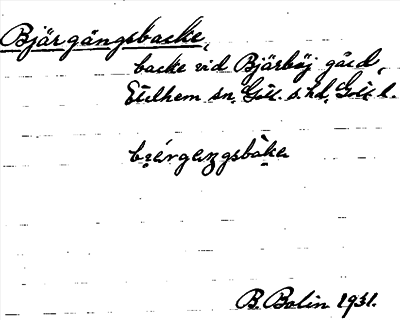 Bjärgängsbacke,
backe vid Bjärhöj gård,
Etelhem sn. Gotl. s. hd. Gotl. l.
bɪ̯érgeŋgsbàkɐ
B. Bolin 1931.